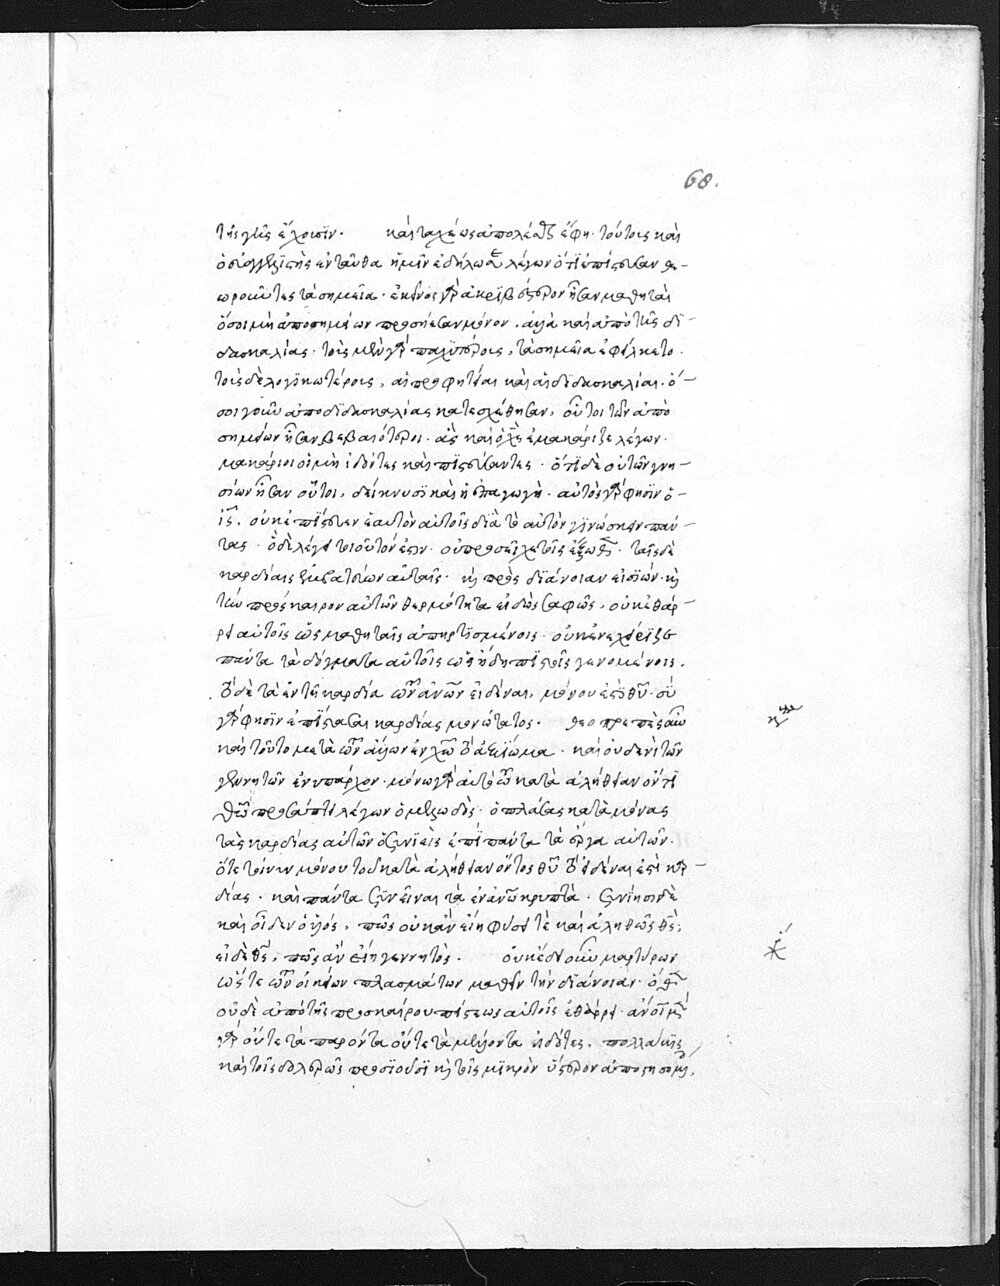 68.
τῆς γῆς ἔχουσιν. καὶ ταχέως ἀπολέσθ ἔφη. τούτοις καὶ
ὁ εὐαγγελιστὴς ἐνταῦθα ἡμῖν ἐδήλωσε λέγων ὅτι ἐπίστευσαν θε-
ωροῦντες τὰ σημεῖα. ἐκεῖνοι γὰρ ἀκριβέστεροι ἦσαν μαθηταὶ
ὅσοι μὴ ἀπὸ σημείων προσήεσαν μόνον. ἀλλὰ καὶ ἀπὸ τῆς δι-
δασκαλίας. τοὺς μὲν γὰρ παχυτέρους, τὰ σημεῖα ἐφείλκετο.
τοὺς δὲ λογικωτέρους, αἱ προφητεῖαι καὶ αἱ διδασκαλίαι. ὅ-
σοι γοῦν ἀπὸ διδασκαλίας κατεσχέθησαν, οὗτοι τῶν ἀπὸ
σημείων ἦσαν βεβαιότεροι. οὓς καὶ ὁ χς ἐμακάριζε λέγων.
μακάριοι οἱ μὴ ἰδόντες καὶ πιστεύσαντες. ὅτι δὲ οὐ τῶν γνη-
σίων ἦσαν οὗτοι, δείκνυσι καὶ ἡ ἐπαγωγή. αὐτὸς γάρ φησιν ὁ
ις. οὐκ ἐπίστευεν ἑαυτὸν αὐτοῖς διὰ τὸ αὐτὸν γινώσκειν πάν-
τας. ὃ δὲ λέγει τοιοῦτόν ἐστιν. οὐ προσεῖχε τοῖς ἔξωθεν. ταῖς δὲ
καρδίαις ἐμβατεύων αὐταῖς. καὶ πρὸς διάνοιαν εἰσιών. καὶ
τὴν πρόσκαιρον αὐτῶν θερμότητα εἰδὼς σαφῶς, οὐκ ἐθάρ-
ρει αὐτοῖς ὡς μαθηταῖς ἀπηρτισμένοις. οὐκ ἐνεχείριζε
πάντα τὰ δόγματα αὐτοῖς ὡς ἤδη πιστοῖς γενομένοις.
τὸ δὲ τὰ ἐν τῇ καρδίᾳ τῶν ἀνων εἰδέναι, μόνου ἐστὶ θυ. σὺ
γάρ φησιν ἐπίστασαι καρδίας μονώτατος. θεοπρεπὲς οὖν
καὶ τοῦτο μετὰ τῶν ἄλλων ἐν χω τὸ ἀξίωμα. καὶ οὐδενὶ τῶν
γενητῶν ἐνυπάρχον. μόνω γὰρ αὐτὸ τῶ κατὰ ἀλήθειαν ὄντι
θεῶ προσάπτει λέγων ὁ μελωδός. ὁ πλάσας κατὰ μόνας
τὰς καρδίας αὐτῶν ὁ συνιεὶς ἐπὶ πάντα τὰ ἔργα αὐτῶν.
ὅτε τοίνυν μόνου τοῦ κατὰ ἀλήθειαν ὄντος θυ τὸ εἰδέναι ἐστὶ καρ-
δίας. καὶ πάντα συνιέναι τὰ ἐν ἀνω κρυπτά. συνίησι δὲ
καὶ οἶδεν ὁ υἱός, πῶς οὐκ ἂν εἴη φύσει τὲ καὶ ἀληθῶς θς;
εἰ δὲ θς, πῶς ἂν εἴη γεννητός. οὐκ ἐδεῖτο οὖν μαρτύρων
ὥστε τῶν οἰκείων πλασμάτων μαθεῖν τὴν διάνοιαν. ὅθεν
οὐδὲ ἀπὸ τῆς προσκαίρου πίστεως αὐτοῖς ἐθάρρει. ἄνοι μὲν
γὰρ οὔτε τὰ παρόντα οὔτε τὰ μέλλοντα εἰδότες, πολλάκις
καὶ τοῖς δολερῶς προσιοῦσι καὶ τοῖς μικρὸν ὕστερον ἀποστησομένοις,